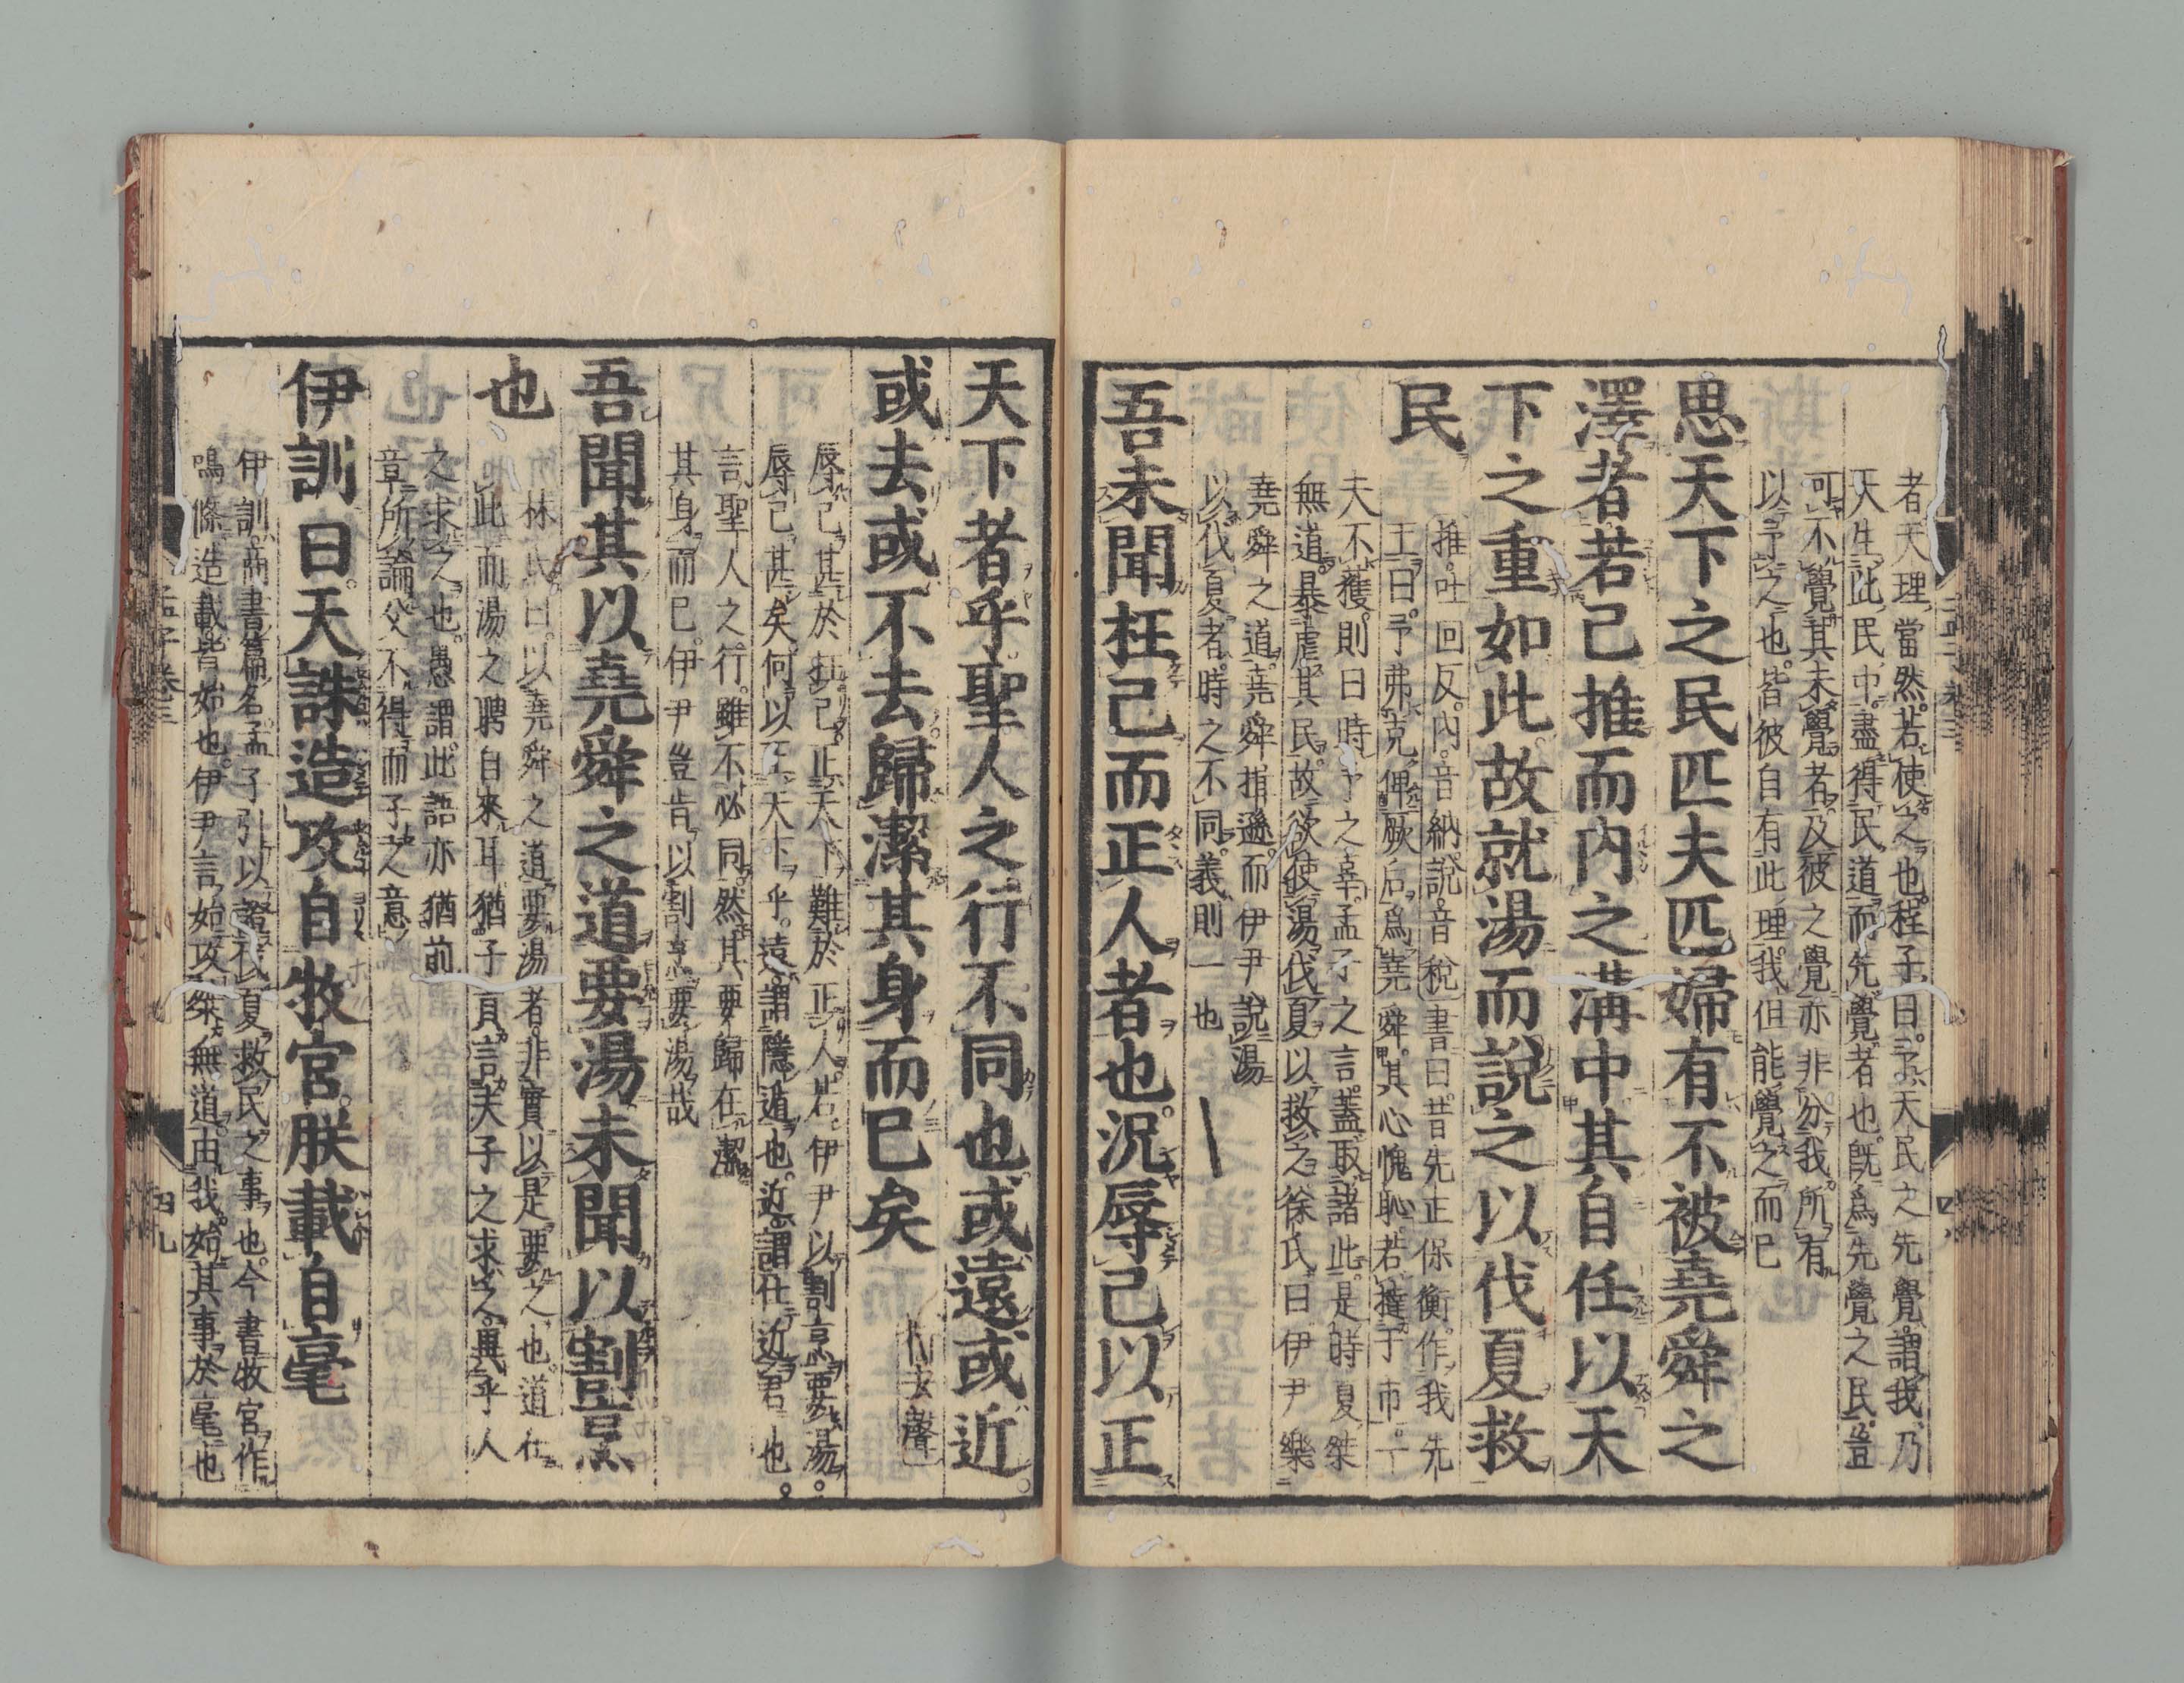 者天理當然若使之也程子曰予天民之先覺謂我乃
天生此民中盡得民道而先覺者也既爲先覺之民豈
可不覺其未覺者及彼之覺亦非分我所有
以予之也皆彼自有此理我但能覺之而已
思天下之民匹夫匹婦有不被堯舜之
澤者若己推而內之溝中其自任以天
下之重如此故就湯而說之以伐夏救
民
推吐回反內音納說音稅書曰昔先正保衡作我先
王曰予弗克俾厥后爲堯舜其心愧恥若撻于市一
夫不獲則曰時予之辜孟子之言蓋取諸此是時夏桀
無道暴虐其民故欲使湯伐夏以救之徐氏曰伊尹樂
堯舜之道堯舜揖遜而伊尹說湯
以伐夏者時之不同義則一也
吾未聞枉己而正人者也況辱己以正
天下者乎聖人之行不同也或遠或近
或去或不去歸潔其身而已矣
行去聲
辱己甚於枉己正天下難於正人若伊尹以割烹要湯
辱己甚矣何以正天下乎遠謂隱遁也近謂仕近君也
言聖人之行雖不必同然其要歸在潔
其身而已伊尹豈肯以割烹要湯哉
吾聞其以堯舜之道要湯未聞以割烹
也
林氏曰以堯舜之道要湯者非實以是要之也道在
此而湯之聘自來耳猶子貢言夫子之求之異乎人
之求之也愚謂此語亦猶前
章所論父不得而子之意
伊訓曰天誅造攻自牧宮朕載自亳
伊訓商書篇名孟子引以證伐夏救民之事也今書牧宮作
鳴條造載皆始也伊尹言始攻桀無道由我始其事於亳也
孟子卷三
四九